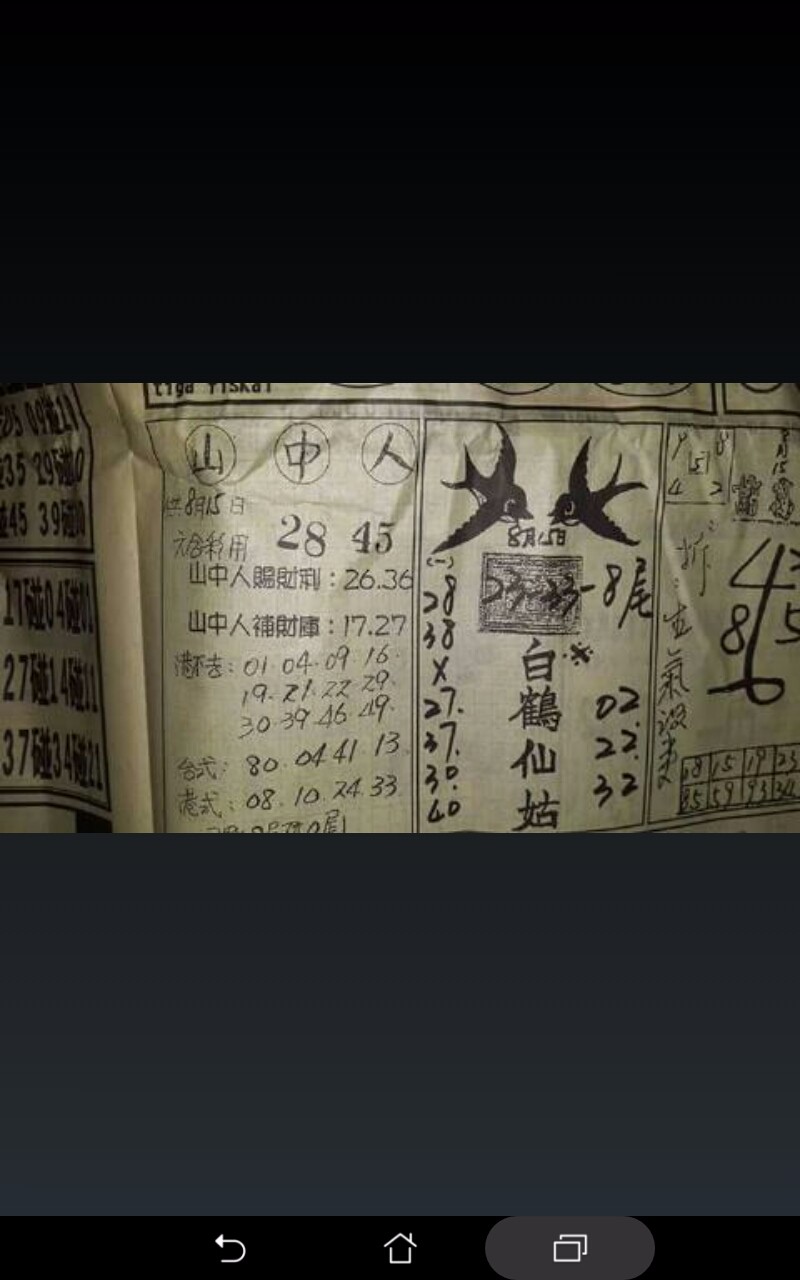 tiga fiskal
05 09碰21
35 29碰
45 39碰
17碰04碰01
27碰14碰11
37碰34碰21
山 中 人
8月15日
28 45
山中人賜財利:26.36
山中人補財庫:17.27
港不去:01.04.09.16.
19.21.22.29.
30.39.46.49.
台式:80.04 41.13.
港式:08.10.24.33
8月15日
(一)
28
38
X
27.
37.
30.
40
23-33-8尾
白鶴仙姑
02.
22.
32
9 8
5
4 2
8月15
拆:生氣沒
4
8 5
6
68 15 19 23
85 59 93 34